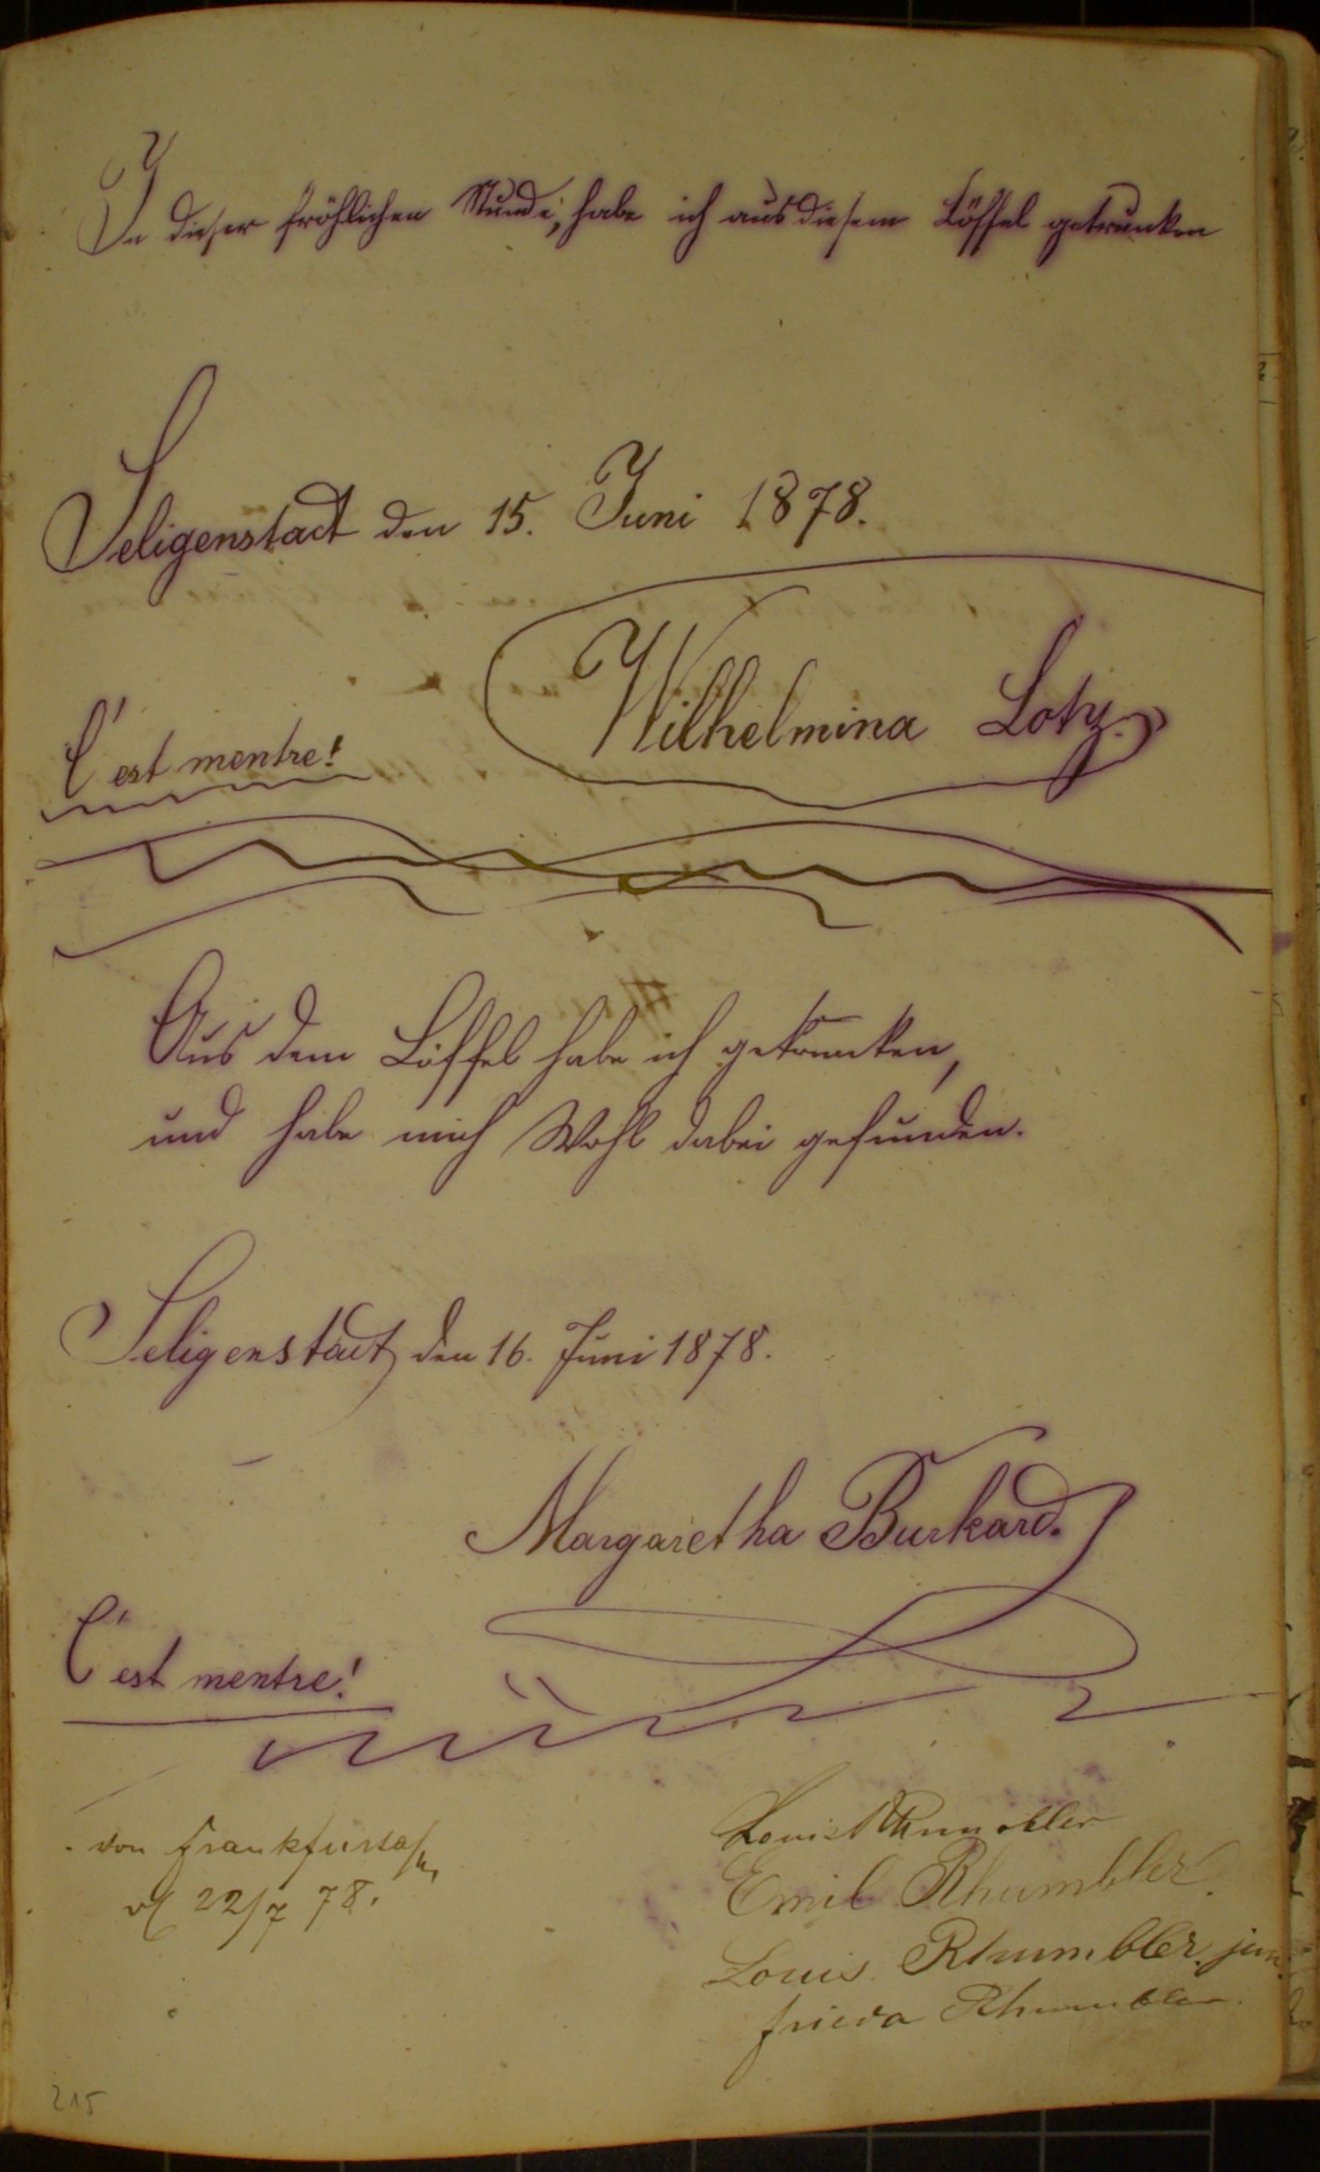 In dieser fröhlichen Stunde, habe ich aus diesem Löffel getrunken
Seligenstadt den 15. Juni 1878.
Wilhelmina Lotz.
C'est mentre!
Aus dem Löffel habe ich getrunken,
und habe mich Wohl dabei gefunden.
Seligenstadt den 16. Juni 1878.
Margaretha Burkard.
C'est mentre!
von Frankfurt a/M
22/7 78.
Louis Rhumbler
Emil Rhumbler.
Louis Rhumbler. jun.
Frieda Rhumbler.
215